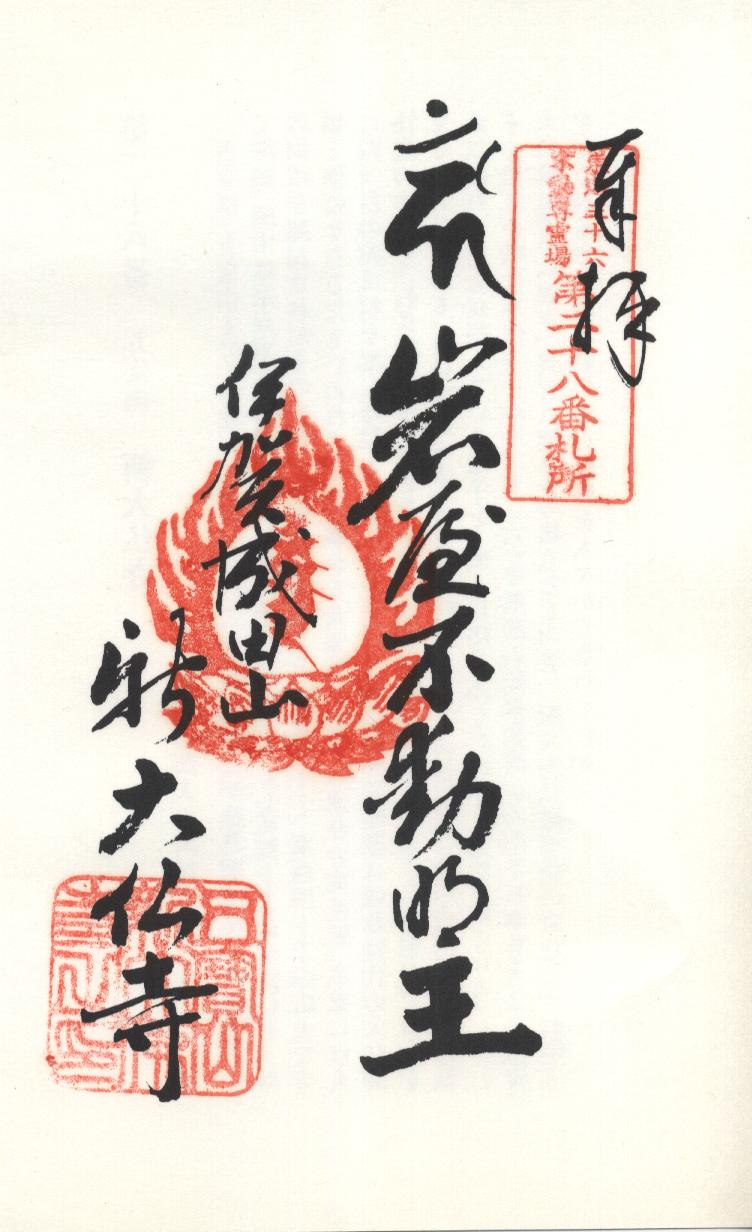 奉拝
東海三十六
不動尊霊場
第二十八番札所
岩屋不動明王
伊賀成田山
新大仏寺